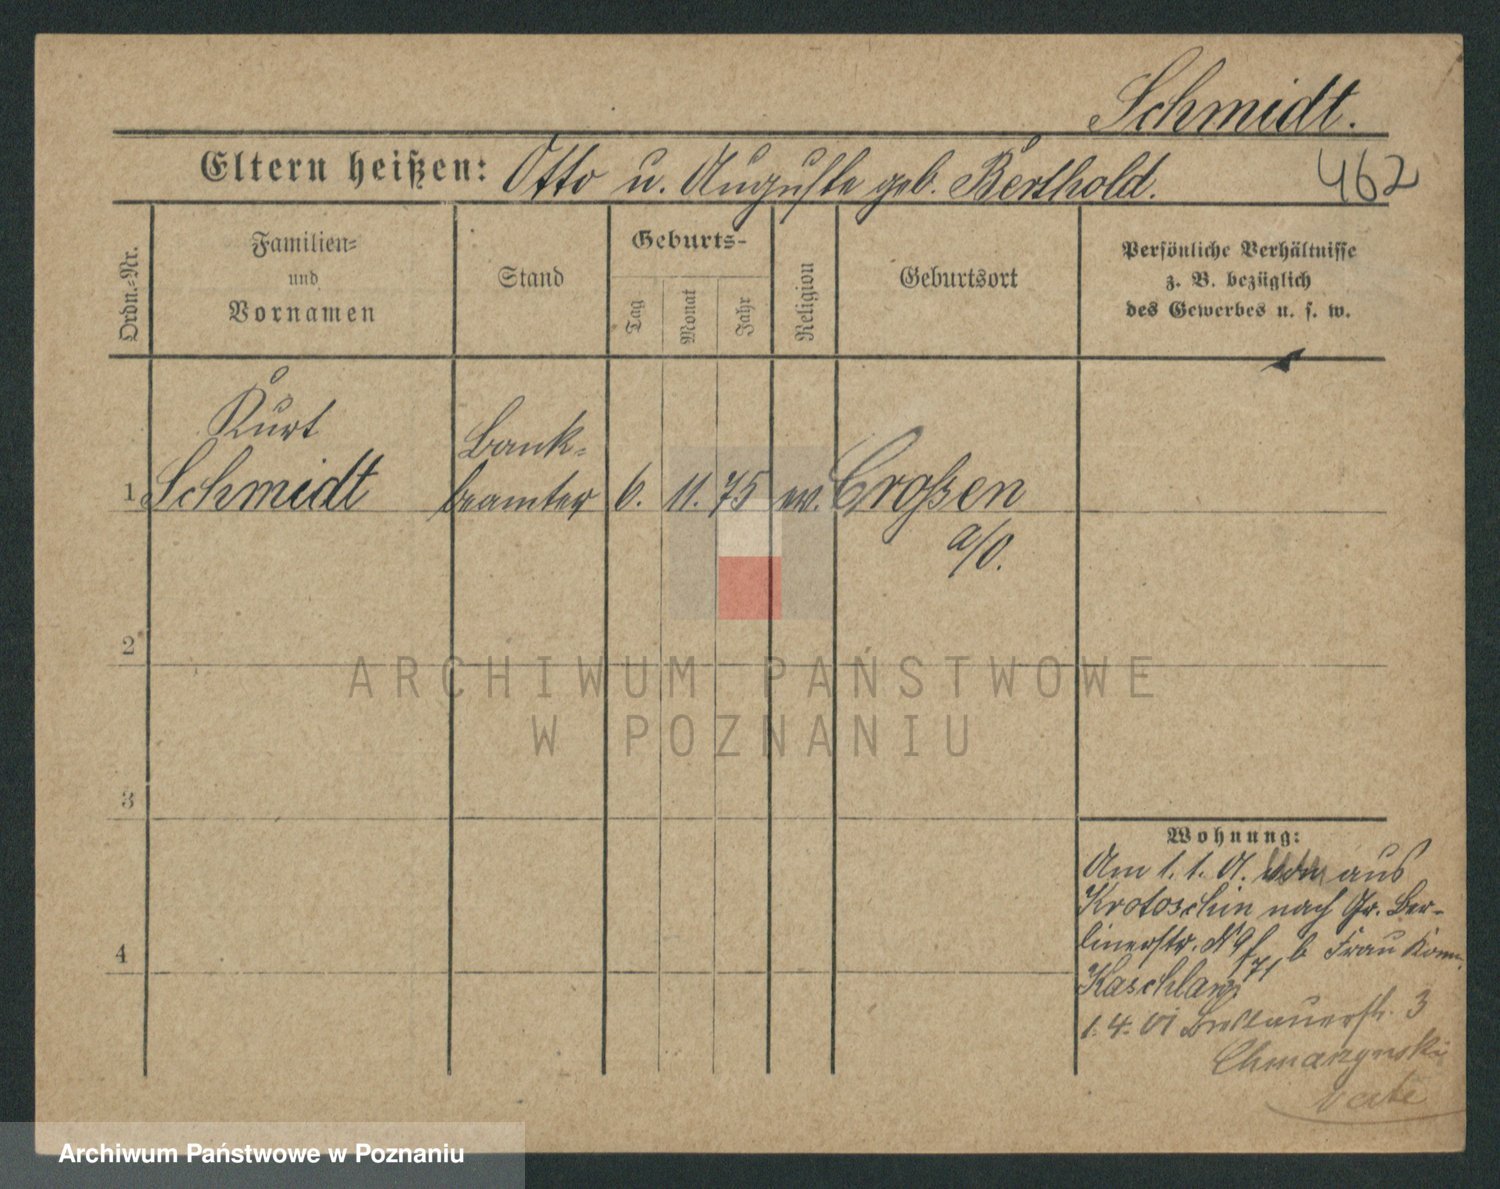 Schmidt.
Eltern heißen: Otto u. Auguste geb. Berthold.
462
Ordn.-Nr.
Familien-
und
Vornamen
Stand
Geburts-
Tag
Monat
Jahr
Religion
Geburtsort
Persönliche Verhältnisse
z. B. bezüglich
des Gewerbes u. s. w.
Kurt
Schmidt
1
Bank-
beamter
6. 11. 75
ev.
Croßen
a/O.
2
3
4
ARCHIWUM PAŃSTWOWE
W POZNANIU
Wohnung:
Am 1. 1. 01. aus
Krotoschin nach Gr. Ber-
linerstr. 71 b Frau
1. 4. 01 Breslauerstr. 3
Archiwum Państwowe w Poznaniu